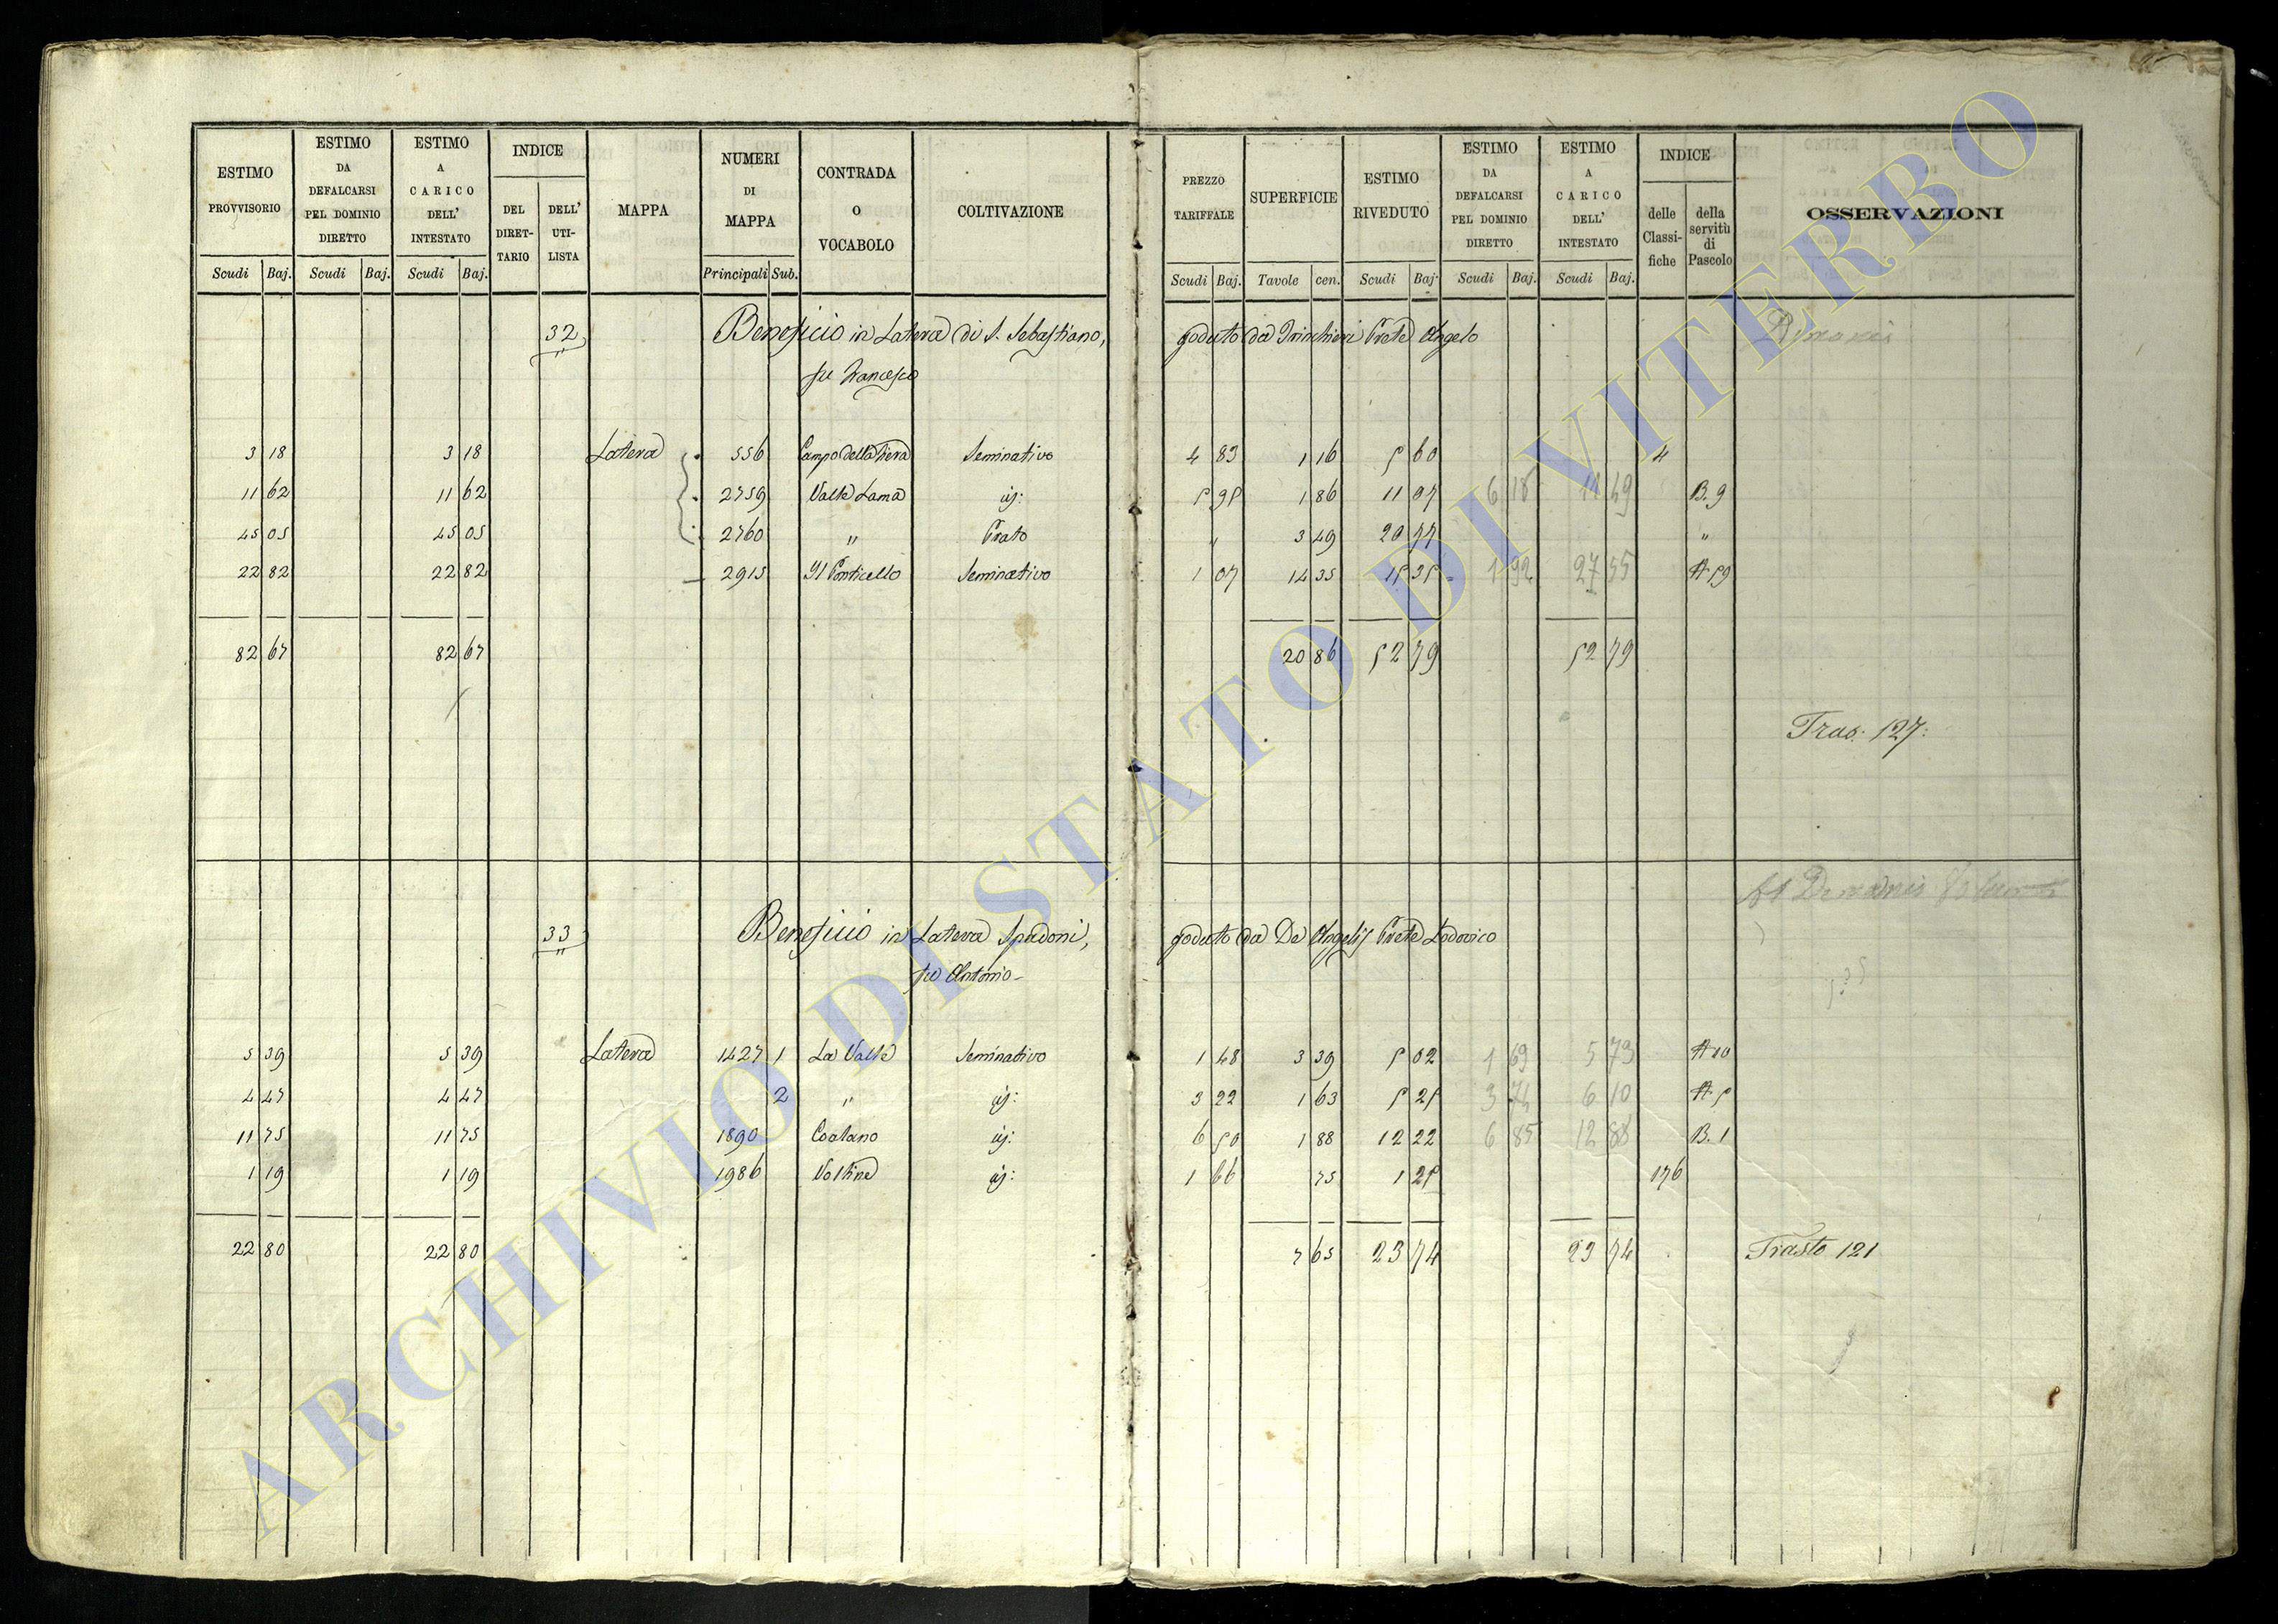 ESTIMO PROVVISORIO | ESTIMO DA DEFALCARSI PEL DOMINIO DIRETTO | ESTIMO A CARICO DELL' INTESTATO | INDICE DEL DIRET-TARIO | DELL' UTI-LISTA | MAPPA | NUMERI DI MAPPA | CONTRADA O VOCABOLO | COLTIVAZIONE | PREZZO TARIFFALE | SUPERFICIE | ESTIMO RIVEDUTO | ESTIMO DA DEFALCARSI PEL DOMINIO DIRETTO | ESTIMO A CARICO DELL' INTESTATO | INDICE delle Classi-fiche | della servitù di Pascolo | OSSERVAZIONI
Scudi Baj. Scudi Baj. Scudi Baj. Principali Sub. Scudi Baj. Tavole cen. Scudi Baj. Scudi Baj. Scudi Baj.
32 Beneficio in Latera di S. Sebastiano, goduto da Prete Angelo
fu Francesco
3 18 3 18 Latera 556 Campo della Fiera Seminativo 4 83 1 16 5 60 4
11 62 11 62 2759 Valle Lama id: 5 95 1 86 11 07 6 18 11 49 B. 9
45 05 45 05 2760 " Prato " 3 49 20 77 "
22 82 22 82 2915 Il Ponticello Seminativo 1 07 14 35 15 35 1 92 27 55 A 59
82 67 82 67 20 86 52 79 52 79
Tras: 127:
33 Beneficio in Latera Spadoni, goduto da De Angelis Prete Lodovico
fu Antonio
5 39 5 39 Latera 1427 1 La Valle Seminativo 1 48 3 39 5 02 1 69 5 73 A 10
4 47 4 47 2 " id: 3 22 1 63 5 25 3 74 6 10 A 5
11 75 11 75 1890 Coatano id: 6 50 1 88 12 22 6 85 12 88 B. 1
1 19 1 19 1986 Voltine id: 1 66 75 1 25 176
22 80 22 80 7 65 23 74 23 74 Trasto 121
ARCHIVIO DI STATO DI VITERBO